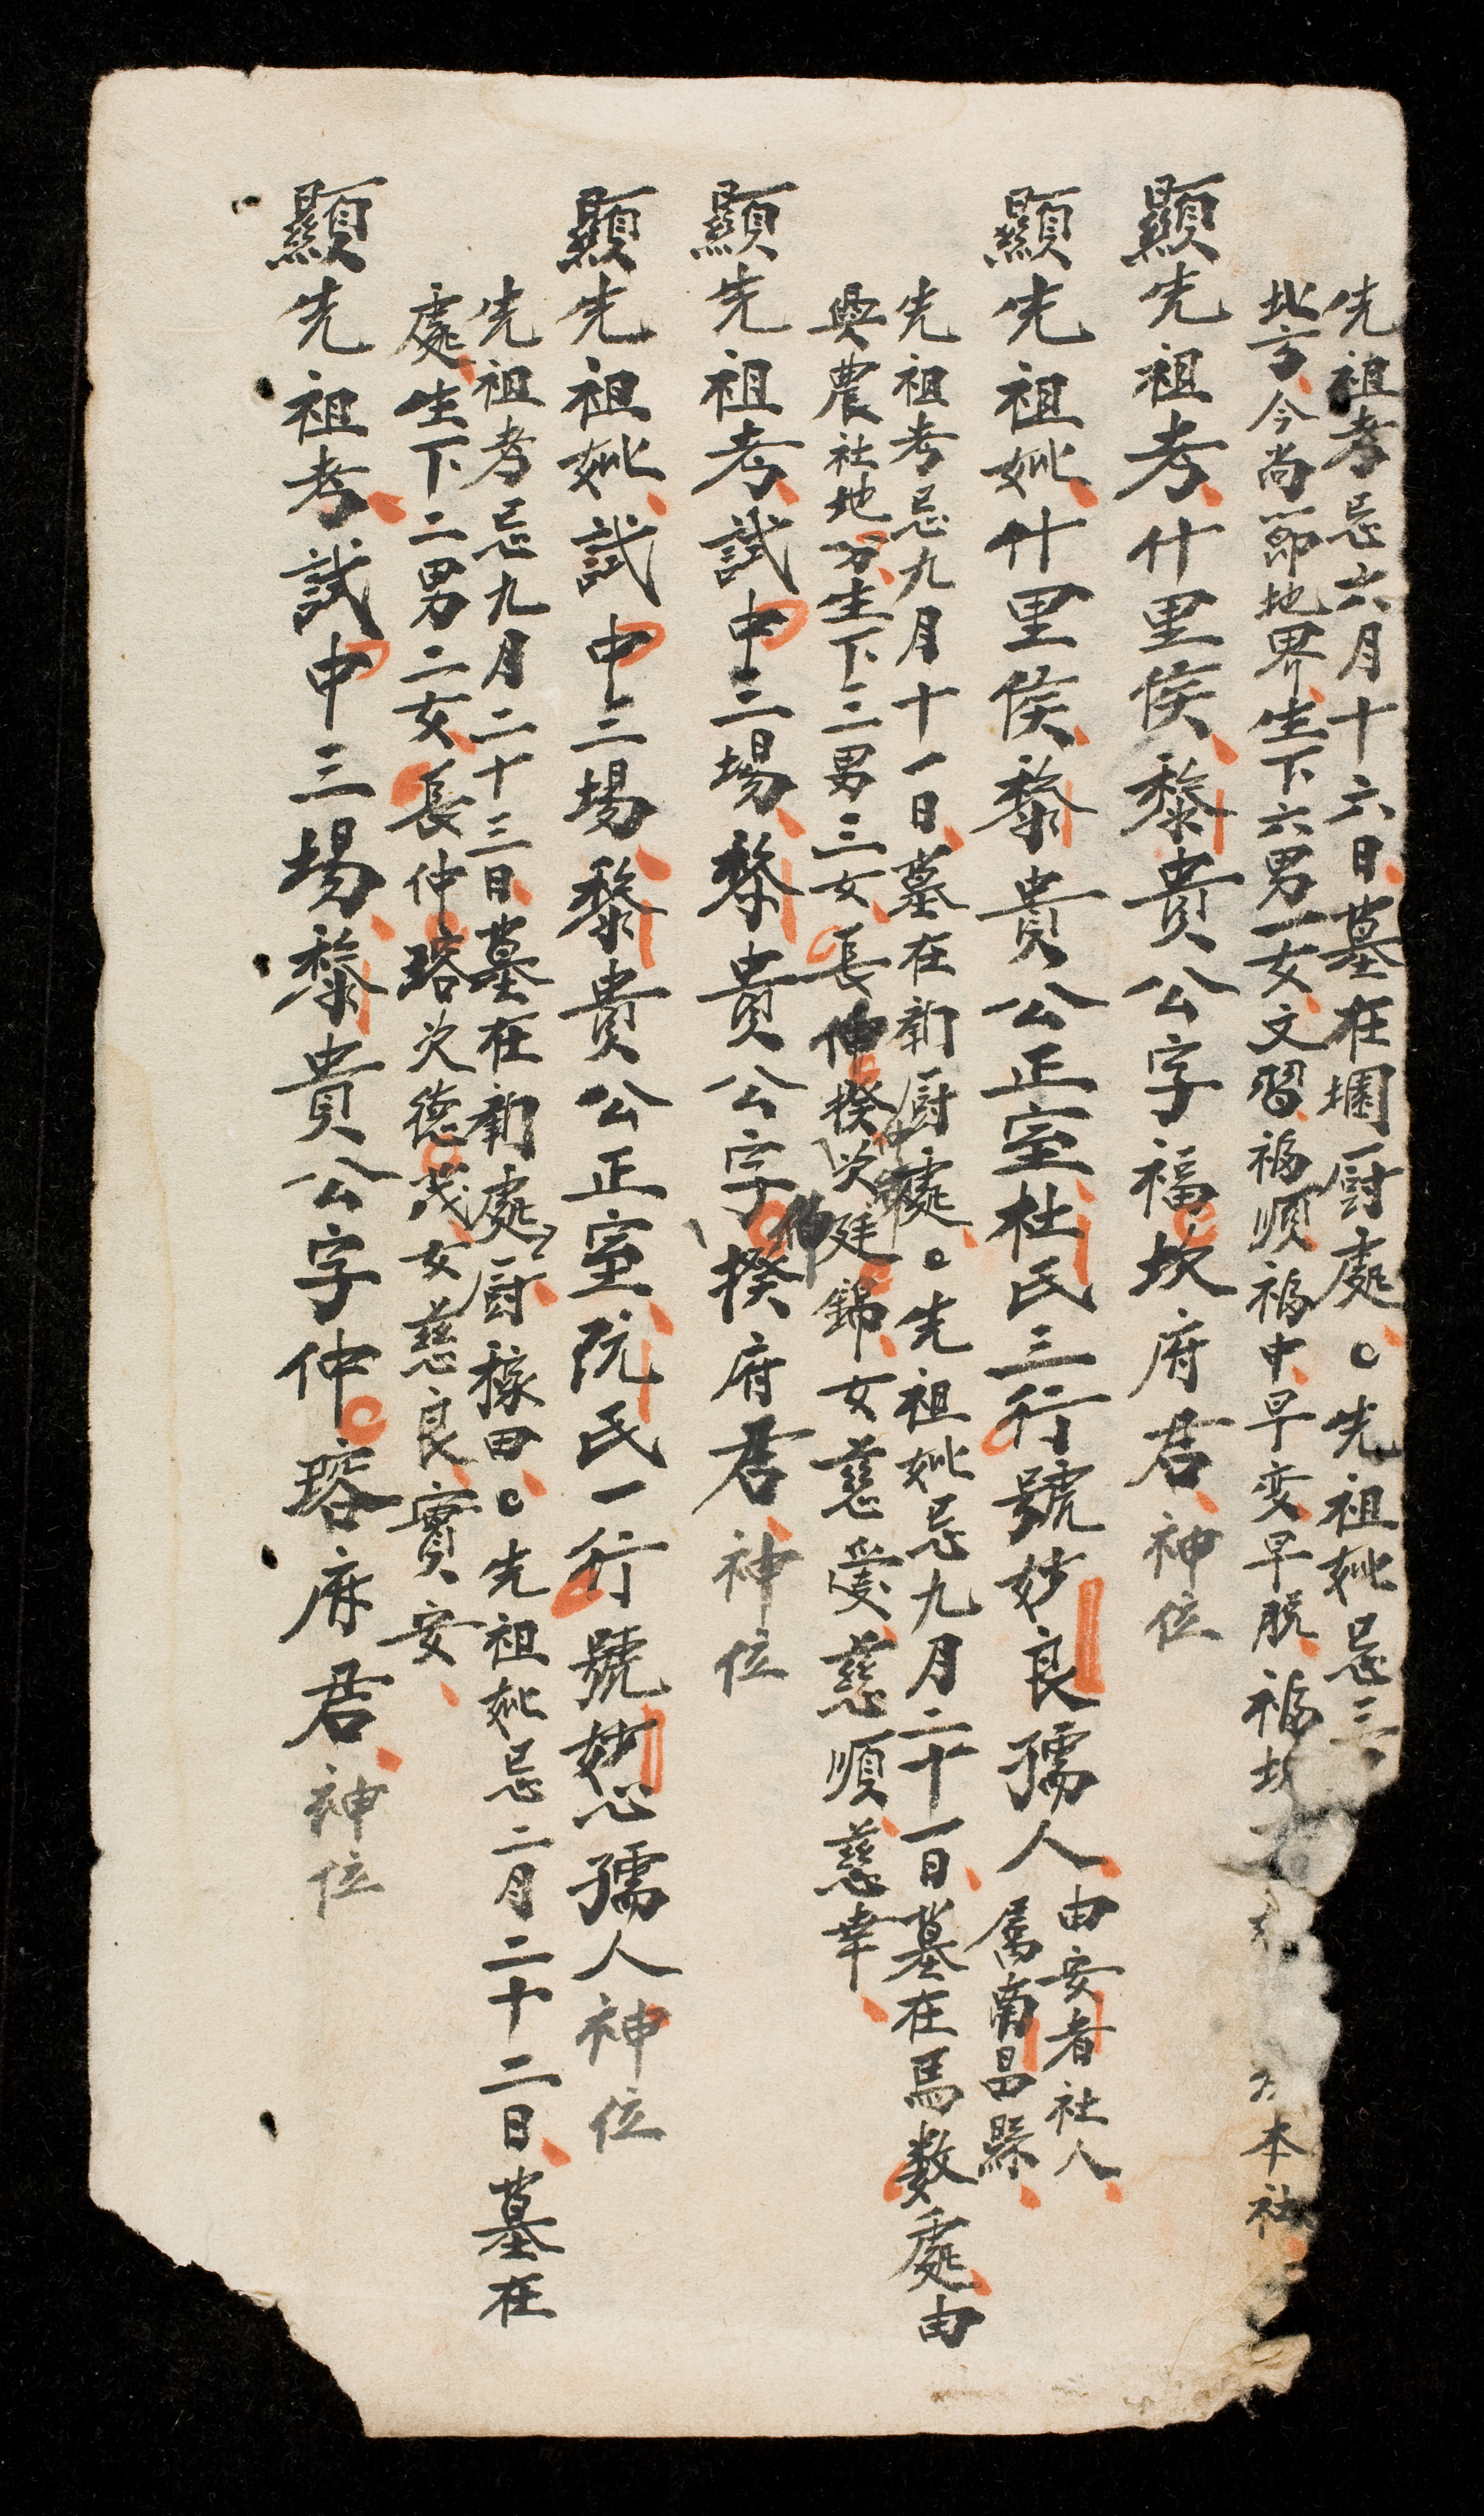 先祖考忌六月十六日墓在壩厨處。先祖妣忌三
北方今尚節地界生下六男一女文習福順福中早変早脱福坎
本社
顯先祖考什里侯黎貴公字福坎府君神位
顯先祖妣什里侯黎貴公正室杜氏三行號妙良孺人由安者社人
属南昌縣
先祖考忌九月十一日墓在新厨處。先祖妣忌九月二十一日墓在馬数處由
興農社地分生下三男三女長伸揆次廷錦女慈受慈順慈幸
顯先祖考試中三場黎貴公字伯揆府君神位
顯先祖妣試中三場黎貴公正室阮氏一行號妙心孺人神位
先祖考忌九月二十三日墓在新處厨稼田。先祖妣忌二月二十二日墓在
處生下二男二女長仲瑢次德茂女慈良實安
顯先祖考試中三場黎貴公字仲瑢府君神位